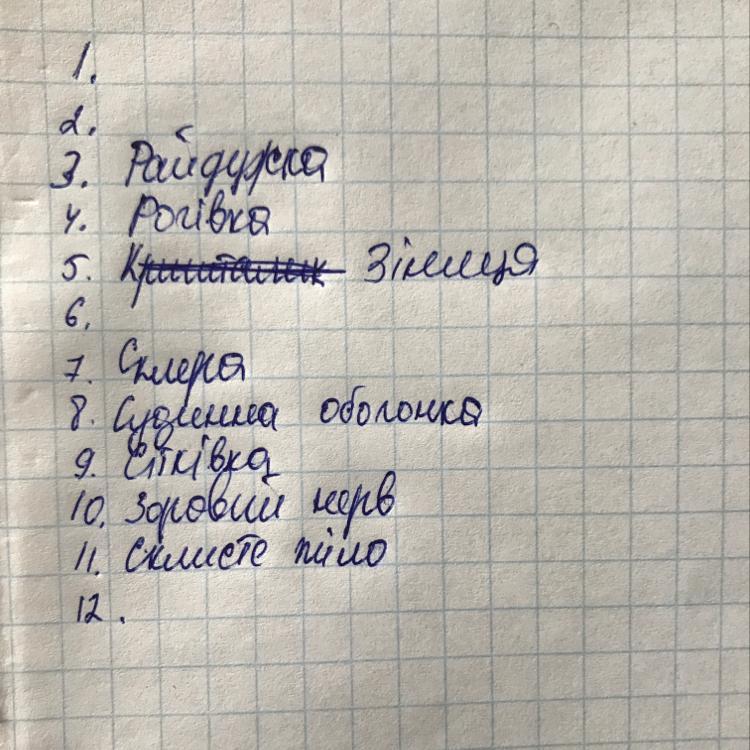 1.
2.
3. Райдужка
4. Рогівка
5. Кришталик Зіниця
6.
7. Склера
8. Судинна оболонка
9. Сітківка
10. Зоровий нерв
11. Склисте тіло
12.